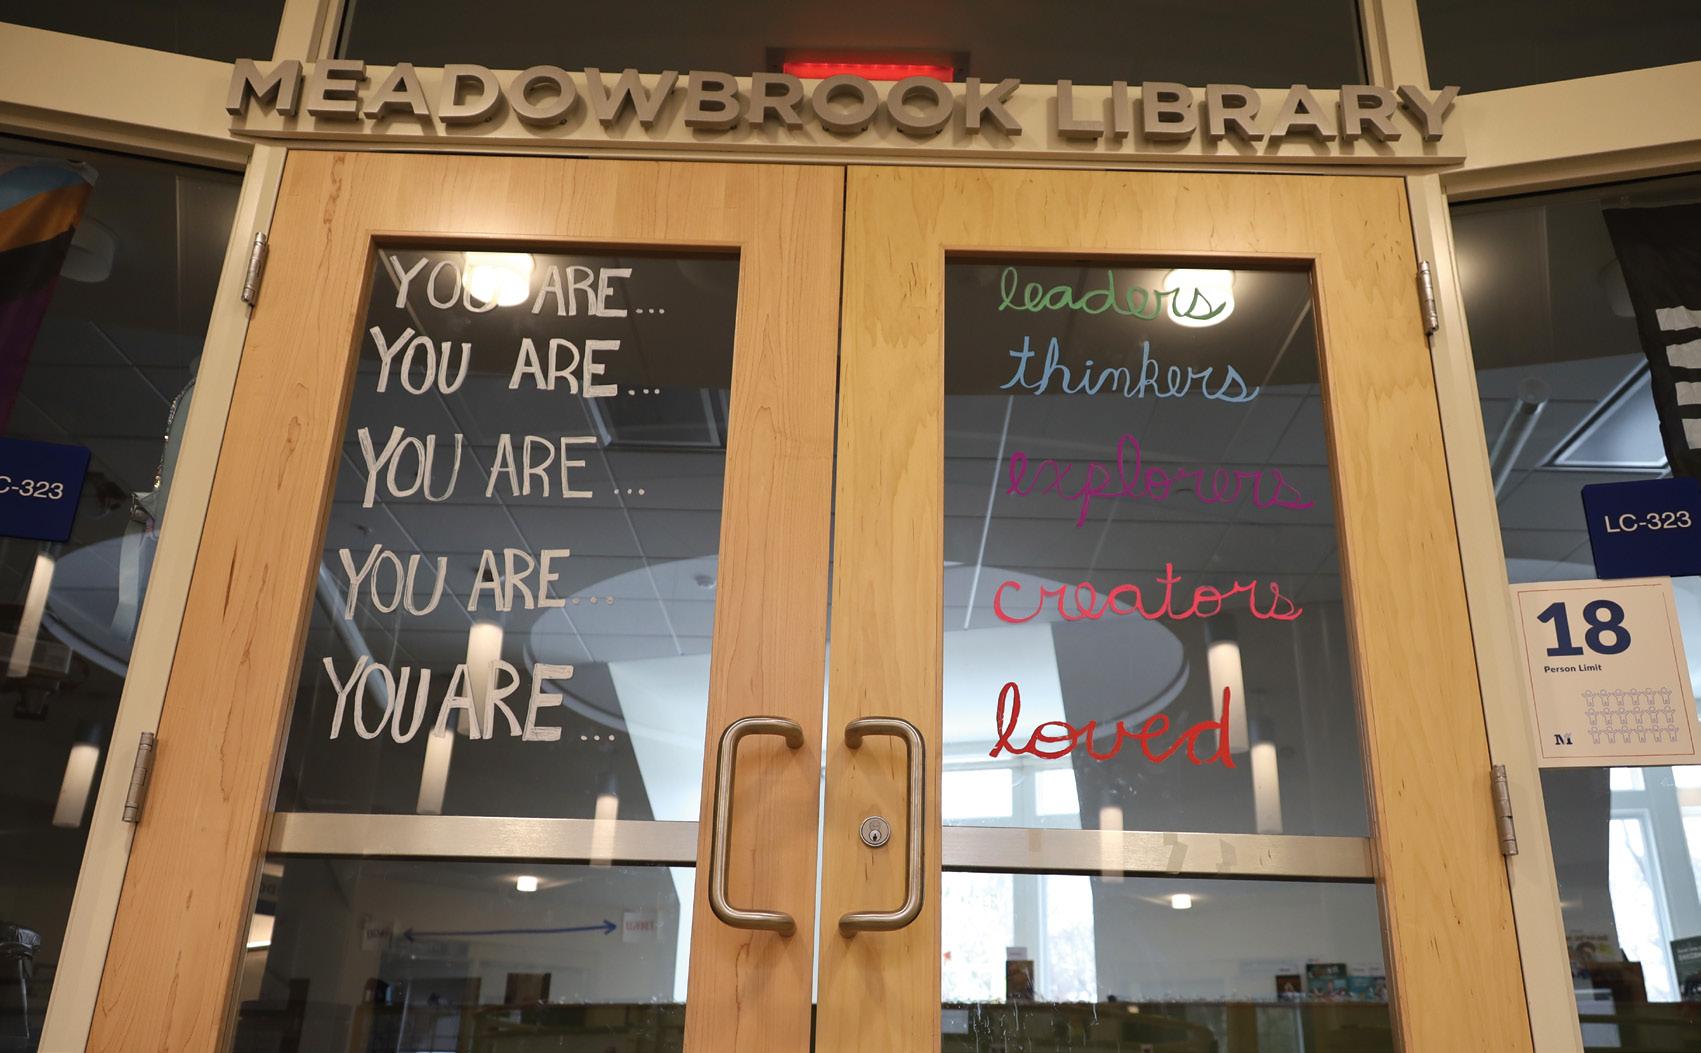 MEADOWBROOK LIBRARY
YOU ARE... leaders
YOU ARE... thinkers
YOU ARE... explorers
YOU ARE... creators
YOU ARE... loved
C-323
LC-323
18
Person Limit
M